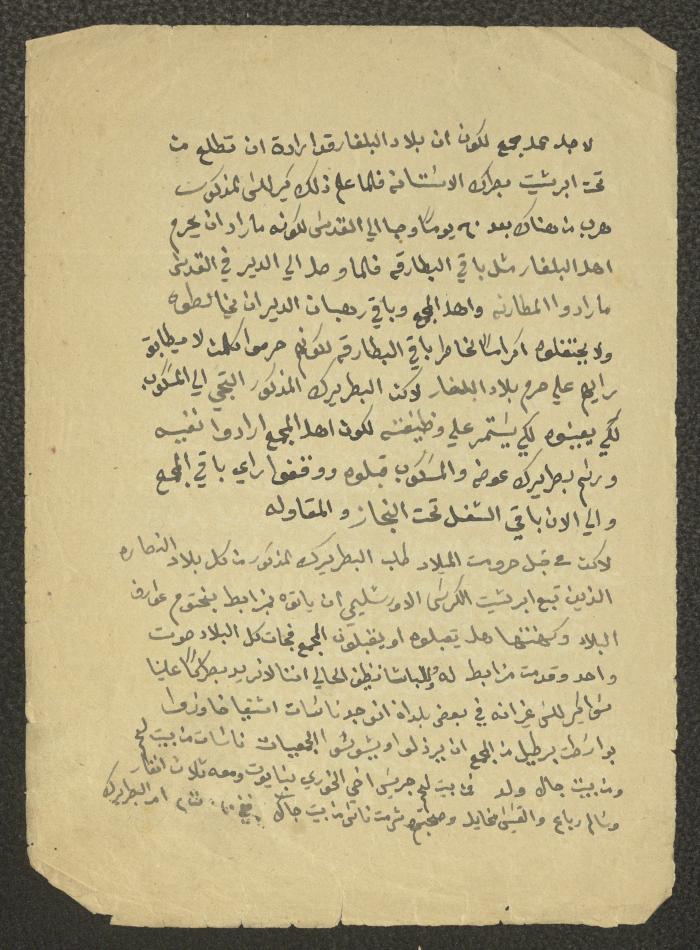 لاجل عمل مجمع لكون ان بلاد البلغار قد ارادة ان تطلع من
تحت ابرشيت بطرك الاستانه فلما علم ذلك كيرللس المذكور
هرب من هناك بعد يومًا وجا الي القدس لكونه ما راد ان يحرم
اهل البلغار مثل باقي البطارقه فلما وصل الي الدير في القدس
ما رادوا المطارنه واهل المجمع وباقي رهبان الدير ان يخالطوه
ولا يحتفلوه اكرامًا لخاطر باقي البطارقه لكونهم حرموا لا يطابق
رايهم علي حرم بلاد البلغار لاكن البطريرك المذكور التجي الي المسكوب
لكي يعينوه لكي يستمر علي وظيفته لكون اهل المجمع ارادوا نفيه
ورسم بطريرك عوضه والمسكوب قبلوه ووقفوا راي باقي المجمع
والي الان باقي الشغل تحت النجاز والمقاوله
لاكن من قبل الميلاد طلب البطريرك المذكور من كل بلاد النصاره
الذين تبع ابرشيت الكرسي الاورشليمي ان ياتوه بمزابط بختوم عوارف
البلاد وكهنتها هل يقبلوه او يقبلون المجمع فجات كل البلاد صوت
واحد وقدمت مزابط له وللباشا نظير الحالي اننا لا نريد بطركًا علينا
سوا كيرللس غير انه في بعض بلدان انوجد ناسات اشقيا خاوزوا
بواسطت برطيل من المجمع ان يرذلوا ويشوشوا الجمعيات ناسات من بيت لحم
ومن بيت جالا ولد في بيت لحم جريس اخي الخوري بنايوت ومعه ثلاث انفار
وسالم رباع والقسيس مخايل وصحبتهم ناس من بيت جالا امر البطريرك